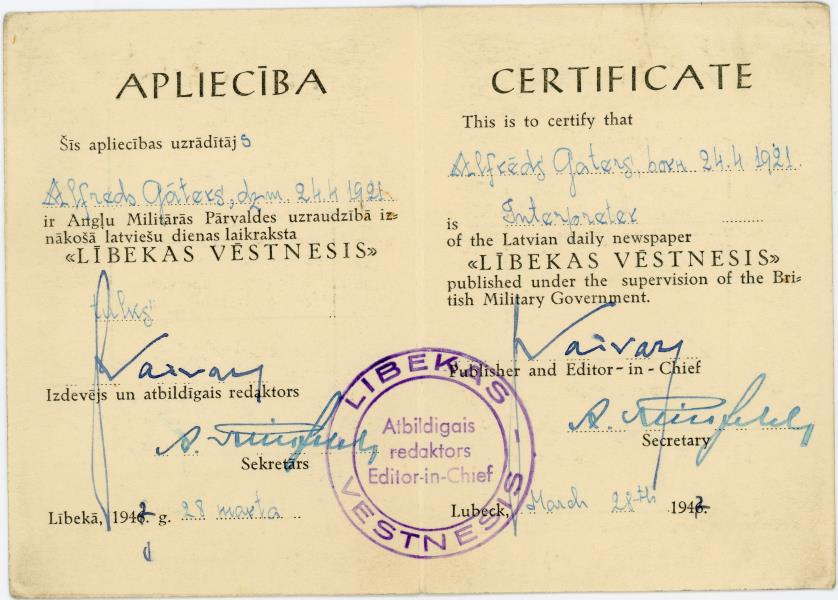 APLIECĪBA
Šīs apliecības uzrādītājs
Alfreds Gāters, dzm. 24.4 1921
ir Angļu Militārās Pārvaldes uzraudzībā iz=
nākošā latviešu dienas laikraksta
«LĪBEKAS VĒSTNESIS»
tulks
Izdevējs un atbildīgais redaktors
Sekretārs
Lībekā, 1947. g. 28 marta
CERTIFICATE
This is to certify that
Alfrēds Gaters, born 24.4 1921.
is Interpreter
of the Latvian daily newspaper
«LĪBEKAS VĒSTNESIS»
published under the supervision of the Bri=
tish Military Government.
Publisher and Editor-in-Chief
Secretary
Lubeck, March 28th 1947.
LĪBEKAS -
Atbildīgais
redaktors
Editor-in-Chief
VĒSTNESIS